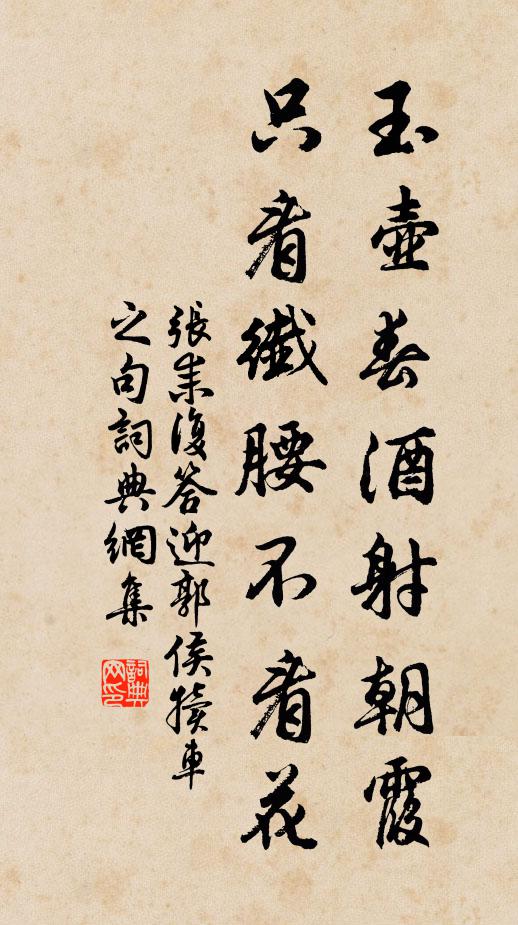 玉壺春酒射朝霞
只看纖腰不看花
張耒復答迎郭侯犢車
之句詞典網集
詞典
网印